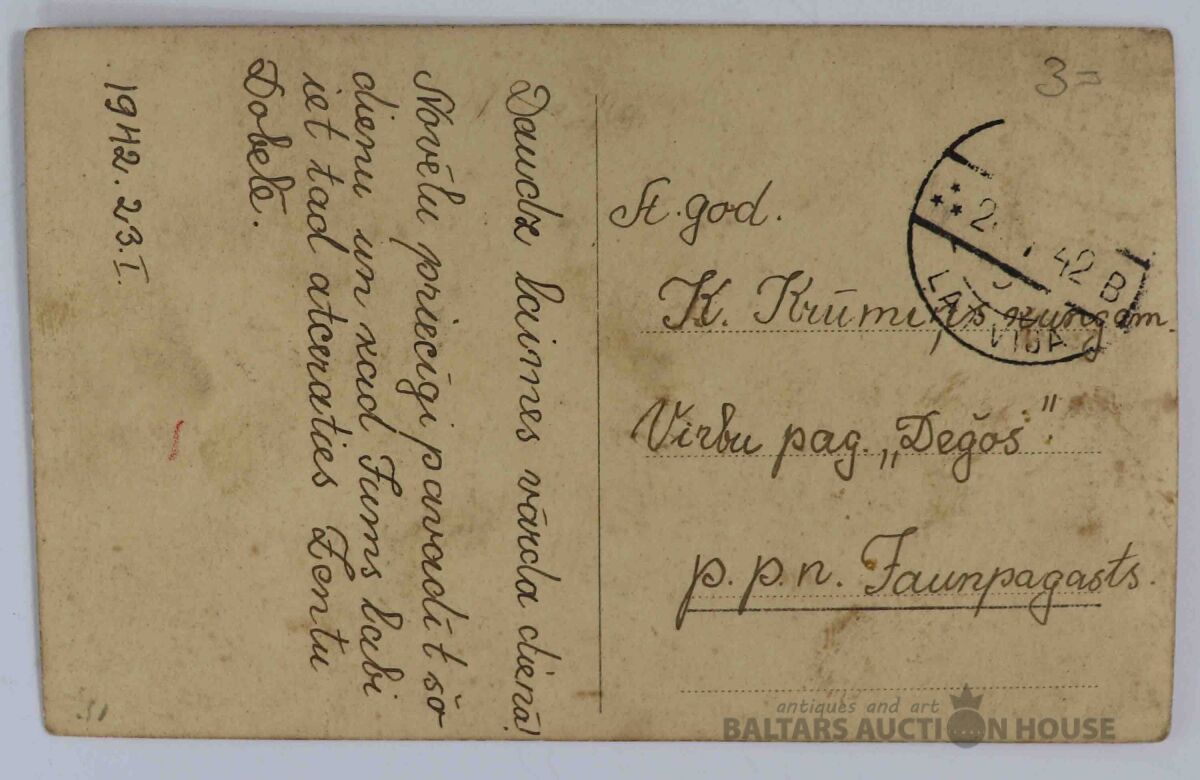 Daudz laimes vārda dienā!
Novēlu priecīgi pavadīt šo
dienu un kad Jums labi
iet tad atceraties Zentu
Dobelē.
1942. 23.I.
3=
A. god.
K. Krūmiņš kungam.
Virbu pag. „Deģoš"
p. p. n. Jaunpagasts.
2 42 B
LATVIJA
antiques and art
BALTARS AUCTION HOUSE